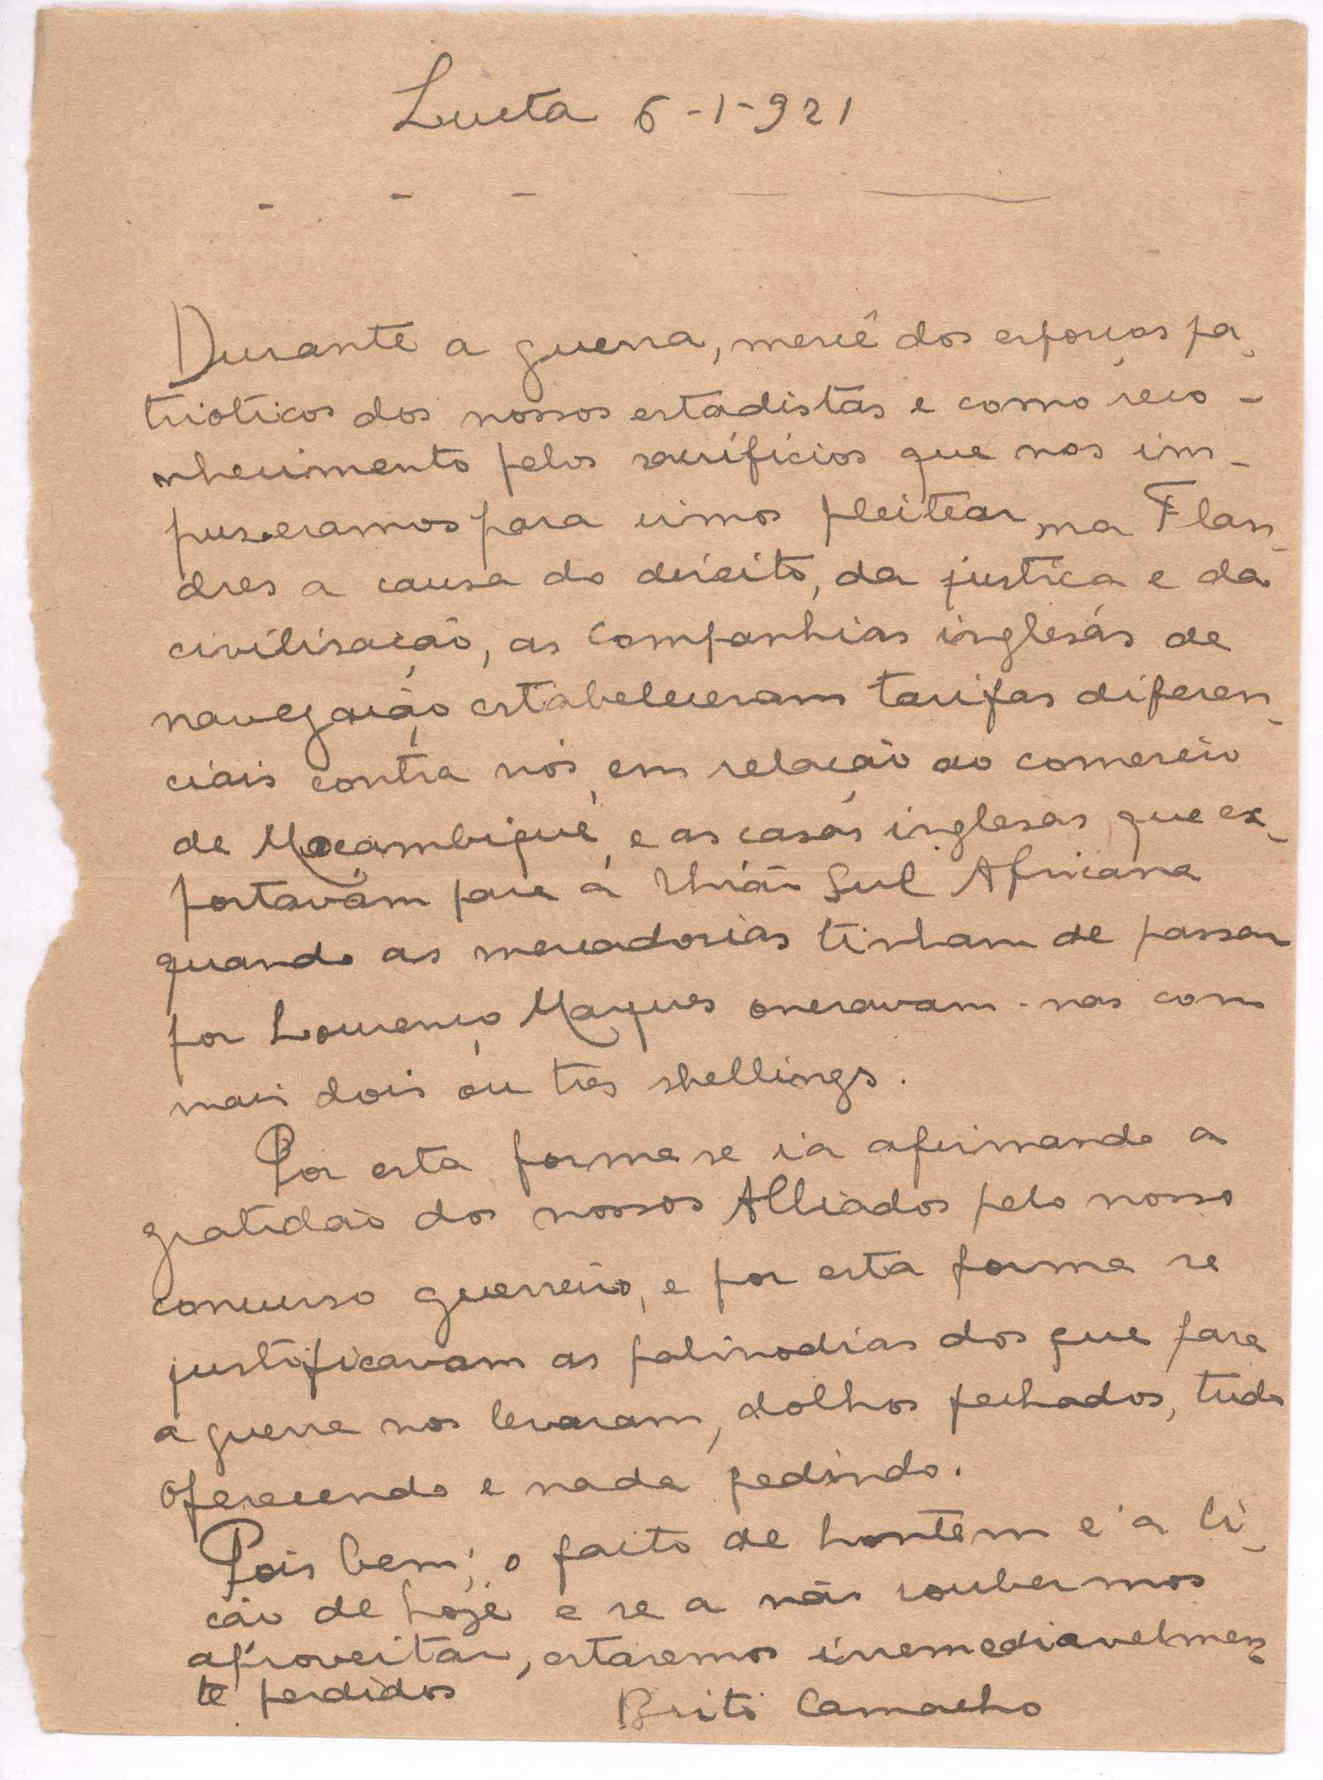 Lucta 6-1-921
Durante a guerra, mercê dos esforços pa-
trioticos dos nossos estadistas e como reco-
nhecimento pelos sacrifícios que nos im-
puzeramos para irmos pleitear na Flan-
dres a causa do direito, da justiça e da
civilisação, as companhias inglesas de
navegação estabeleceram tarifas diferen-
ciais contra nós, em relação ao comercio
de Moçambique, e as casas inglesas, que ex-
portavam para a União Sul Africana
quando as mercadorias tinham de passar
por Lourenço Marques oneravam-nas com
mais dois ou tres shellings.
Por esta forma se ia afirmando a
gratidão dos nossos Alliados pelo nosso
concurso guerreiro, e por esta forma se
justificavam as palinodias dos que para
a guerra nos levaram, d'olhos fechados, tudo
oferecendo e nada pedindo.
Pois bem; o facto de hontem é a li-
ção de hoje e se a não soubermos
aproveitar, estaremos irremediavelmen-
te perdidos
Brito Camacho